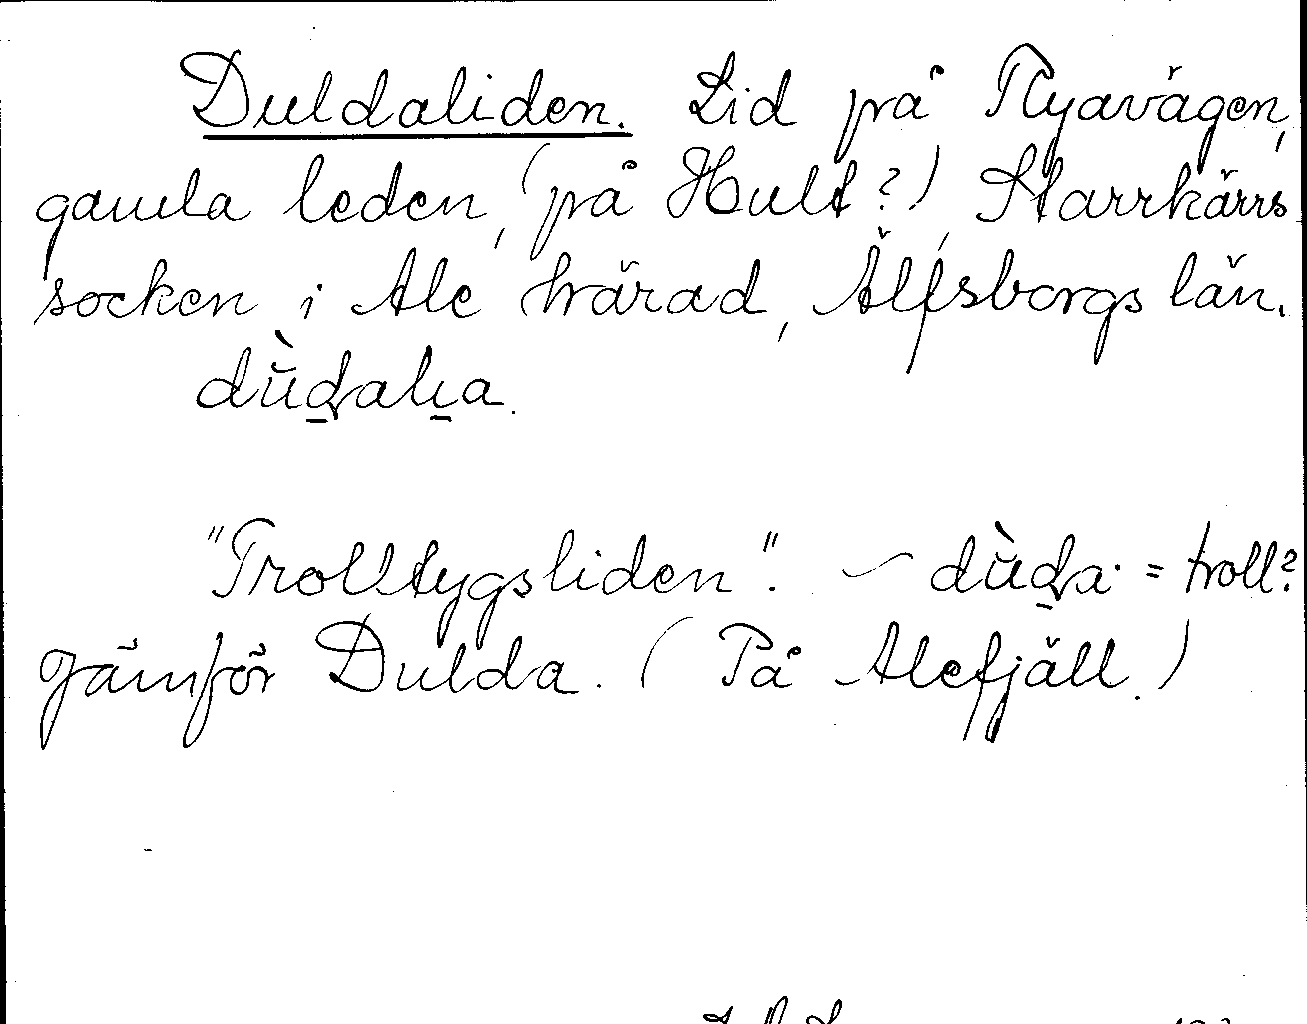 Duldaliden. Lid på Nyavägen,
gamla leden, (på Hult?), Starrkärrs
socken i Ale härad, Älfsborgs län.
dùdalia.
"Trolltygsliden". – dùda = troll?
Jämför Dulda. (På Alefjäll.)